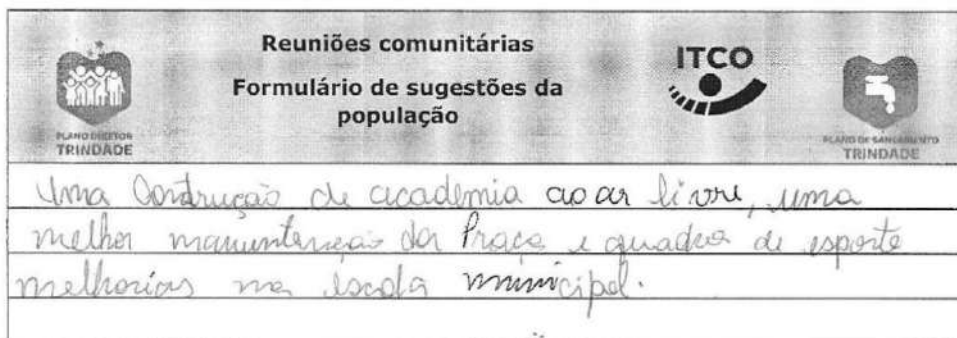 Reuniões comunitárias
Formulário de sugestões da
população
ITCO
PLANO DIRETOR
TRINDADE
PLANO DE SANEAMENTO
TRINDADE
Uma Construção de academia ao ar livre, uma
melhor manuntenção da Praça e quadra de esporte
melhorias na escola municipal.